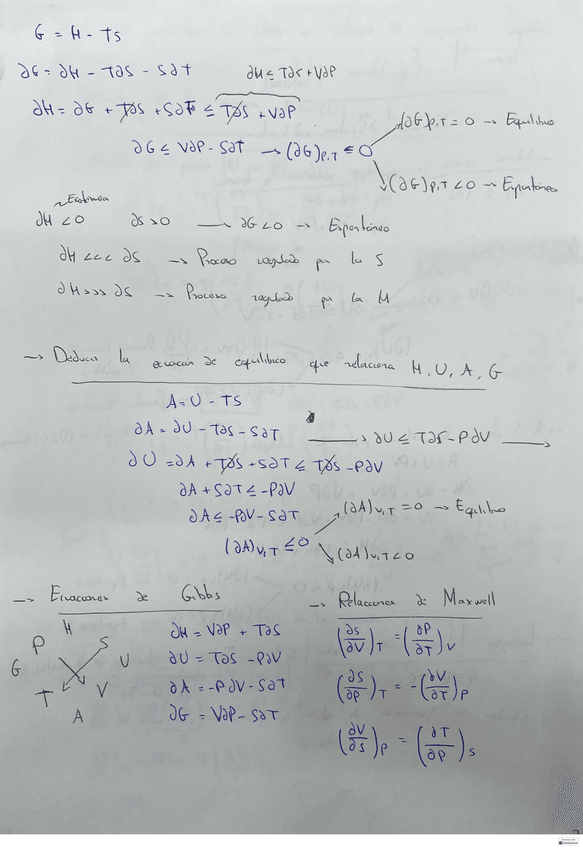 G = H - TS
∂G = ∂H - T∂S - S∂T    ∂H ≤ T∂S + V∂P
∂H = ∂G + T∂S + S∂T ≤ T∂S + V∂P
∂G ≤ V∂P - S∂T → (∂G)P,T ≤ 0
(∂G)P,T = 0 → Equilibrio
(∂G)P,T < 0 → Espontáneo
∂H < 0    ∂S > 0 → ∂G < 0 → Espontáneo
∂H <<< ∂S → Proceso regulado por la S
∂H >>> ∂S → Proceso regulado por la H
→ Deducir la ecuación de equilibrio que relaciona H, U, A, G
A = U - TS
∂A = ∂U - T∂S - S∂T → ∂U ≤ T∂S - P∂V →
∂U = ∂A + T∂S + S∂T ≤ T∂S - P∂V
∂A + S∂T ≤ -P∂V
∂A ≤ -P∂V - S∂T
(∂A)V,T ≤ 0
(∂A)V,T = 0 → Eqilibrio
(∂A)V,T < 0
→ Ecuaciones de Gibbs
H
P S
G U
T V
A
∂H = V∂P + T∂S
∂U = T∂S - P∂V
∂A = -P∂V - S∂T
∂G = V∂P - S∂T
→ Relaciones de Maxwell
(∂S/∂V)T = (∂P/∂T)V
(∂S/∂P)T = -(∂V/∂T)P
(∂V/∂S)P = (∂T/∂P)S